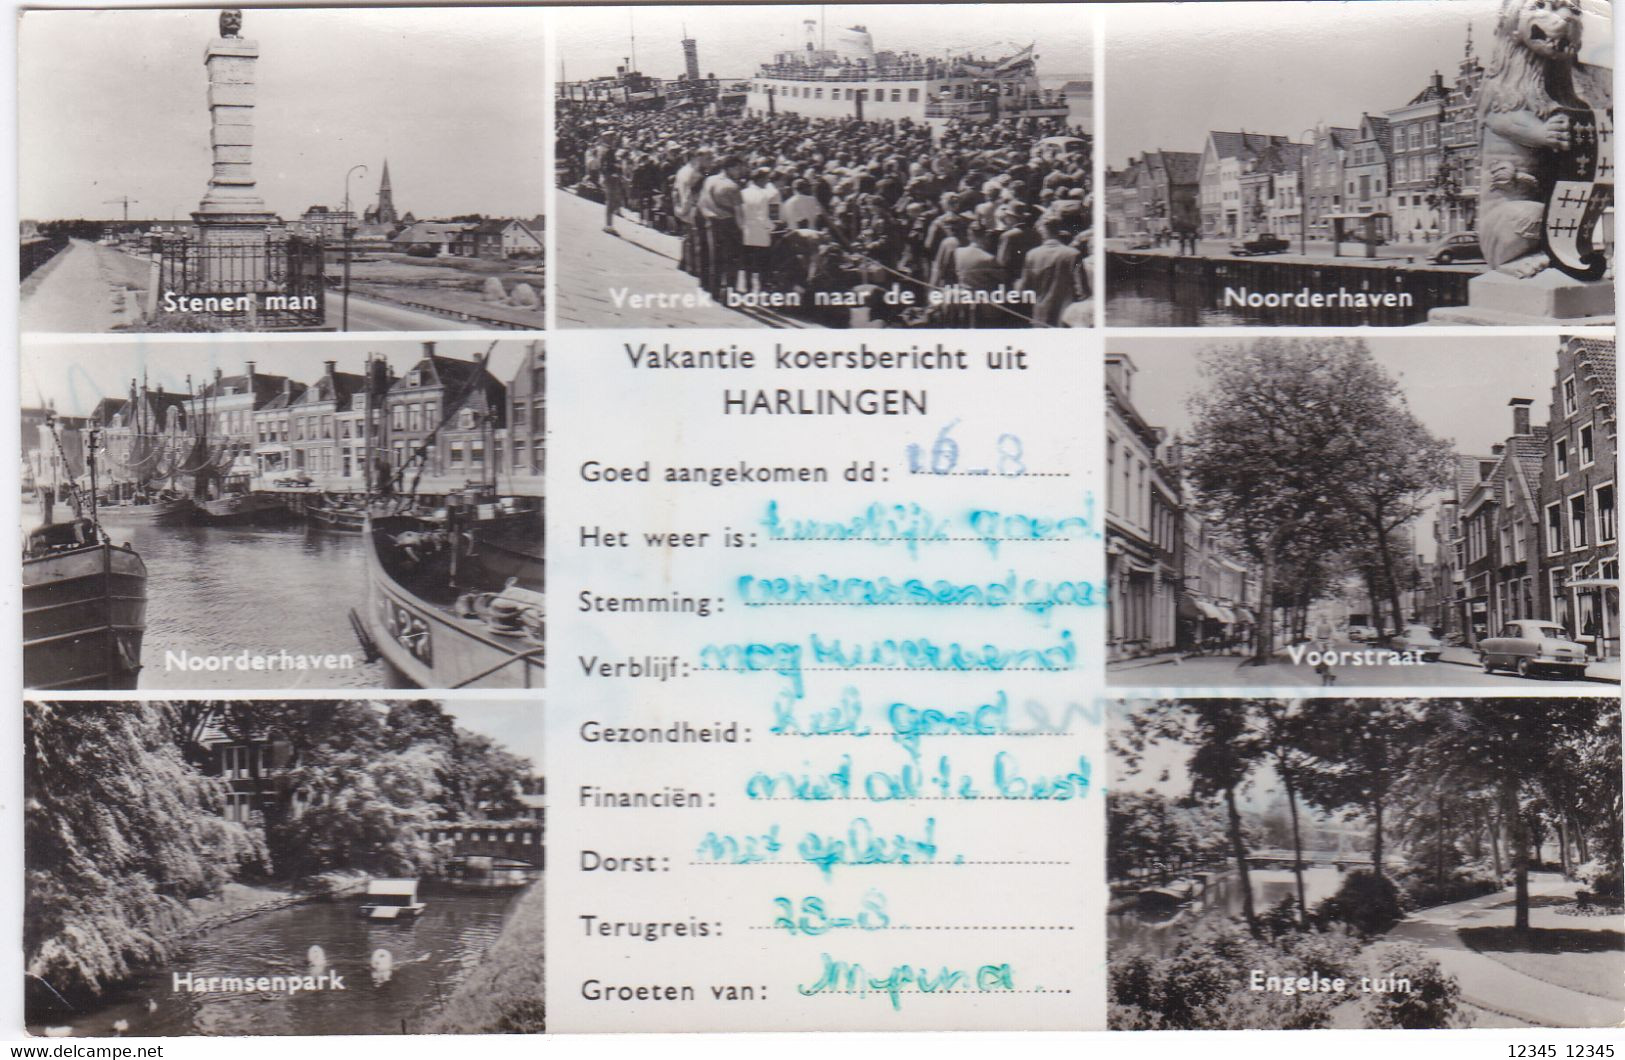 Stenen man
Vertrek boten naar de eilanden
Noorderhaven
Vakantie koersbericht uit
HARLINGEN
Goed aangekomen dd: 16-8
Het weer is: tamelijk goed
Stemming: verrassend goed
Verblijf: nog verrassend
Gezondheid: heel goed
Financiën: niet al te best
Dorst: niet gelest.
Terugreis: 28-8
Groeten van: Myrna.
Noorderhaven
A27
Voorstraat
Harmsenpark
Engelse tuin
12345 12345
www.delcampe.net